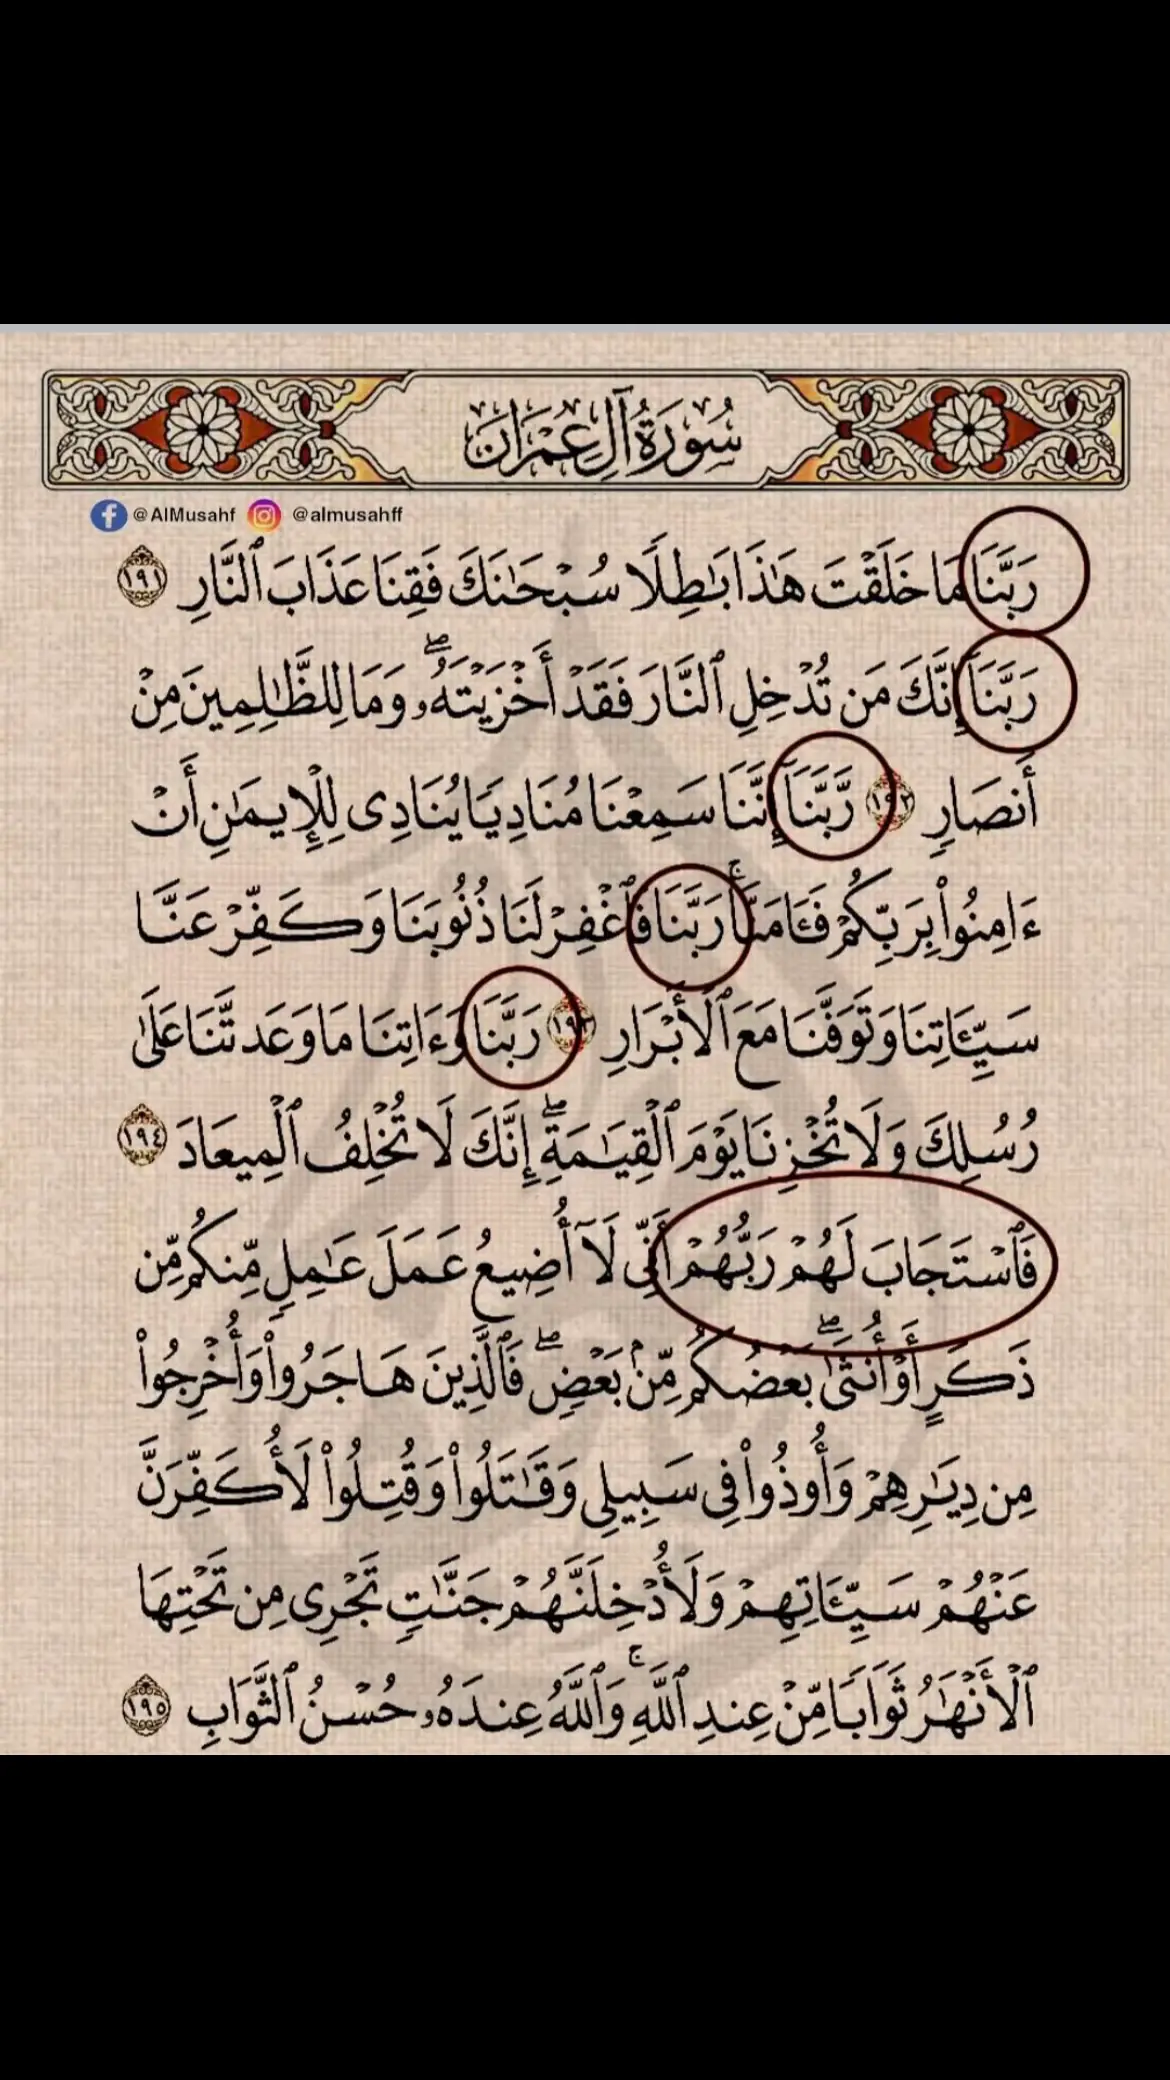 سُورَةُ آلِ عِمْرَان
@AlMusahf @almusahff
رَبَّنَا مَا خَلَقْتَ هَٰذَا بَٰطِلًا سُبْحَٰنَكَ فَقِنَا عَذَابَ ٱلنَّارِ ١٩١
رَبَّنَآ إِنَّكَ مَن تُدْخِلِ ٱلنَّارَ فَقَدْ أَخْزَيْتَهُۥۖ وَمَا لِلظَّٰلِمِينَ مِنْ
أَنصَارٍ ١٩٢ رَّبَّنَآ إِنَّنَا سَمِعْنَا مُنَادِيًا يُنَادِى لِلْإِيمَٰنِ أَنْ
ءَامِنُوا۟ بِرَبِّكُمْ فَـَٔامَنَّاۚ رَبَّنَا فَٱغْفِرْ لَنَا ذُنُوبَنَا وَكَفِّرْ عَنَّا
سَيِّـَٔاتِنَا وَتَوَفَّنَا مَعَ ٱلْأَبْرَارِ ١٩٣ رَبَّنَا وَءَاتِنَا مَا وَعَدتَّنَا عَلَىٰ
رُسُلِكَ وَلَا تُخْزِنَا يَوْمَ ٱلْقِيَٰمَةِۖ إِنَّكَ لَا تُخْلِفُ ٱلْمِيعَادَ ١٩٤
فَٱسْتَجَابَ لَهُمْ رَبُّهُمْ أَنِّى لَآ أُضِيعُ عَمَلَ عَٰمِلٍ مِّنكُم مِّن
ذَكَرٍ أَوْ أُنثَىٰۖ بَعْضُكُم مِّنۢ بَعْضٍۖ فَٱلَّذِينَ هَاجَرُوا۟ وَأُخْرِجُوا۟
مِن دِيَٰرِهِمْ وَأُوذُوا۟ فِى سَبِيلِى وَقَٰتَلُوا۟ وَقُتِلُوا۟ لَأُكَفِّرَنَّ
عَنْهُمْ سَيِّـَٔاتِهِمْ وَلَأُدْخِلَنَّهُمْ جَنَّٰتٍ تَجْرِى مِن تَحْتِهَا
ٱلْأَنْهَٰرُ ثَوَابًا مِّنْ عِندِ ٱللَّهِۚ وَٱللَّهُ عِندَهُۥ حُسْنُ ٱلثَّوَابِ ١٩٥